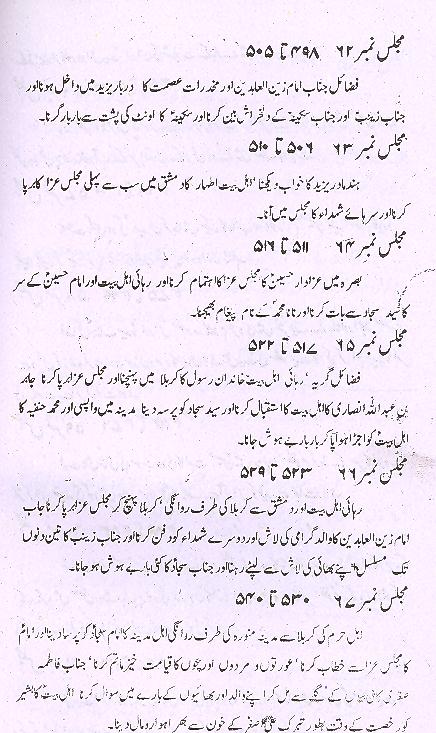 مجلس نمبر ۶۲ ۴۹۸ تا ۵۰۵
فضائل جناب امام زین العابدین اور مخدرات عصمت کا دربار یزید میں داخل ہونا اور
جناب زینبؑ اور جناب سکینہؑ کے دلخراش بین کرنا اور سکینہؑ کا اونٹ کی پشت سے بار بار گرنا۔
مجلس نمبر ۶۳ ۵۰۶ تا ۵۱۰
ہند مادر یزید کا خواب دیکھنا' اہل بیت اطہار کا دمشق میں سب سے پہلی مجلس عزا کا برپا
کرنا اور سرہائے شہداء کا مجلس میں آنا۔
مجلس نمبر ۶۴ ۵۱۱ تا ۵۱۶
بصرہ میں عزادار حسینؑ کا مجلس عزا کا اہتمام کرنا اور رہائی اہل بیت اور امام حسینؑ کے سر
کا سید سجاد سے بات کرنا اور نانا محمدؐ کے نام پیغام بھیجنا۔
مجلس نمبر ۶۵ ۵۱۷ تا ۵۲۲
فضائل گریہ' رہائی اہل بیت' خاندان رسول کا کربلا میں پہنچنا اور مجلس عزا برپا کرنا جابر
بن عبد اللہ انصاری کا اہل بیت کا استقبال کرنا اور سید سجاد کو پرسہ دینا مدینہ میں واپسی اور محمد حنفیہ کا
اہل بیتؑ کو اجڑا ہوا پا کر بار بار بے ہوش ہو جانا۔
مجلس نمبر ۶۶ ۵۲۳ تا ۵۲۹
رہائی اہل بیت اور دمشق سے کربلا کی طرف روانگی' کربلا پہنچ کر مجلس عزا برپا کرنا جناب
امام زین العابدین کا والد گرامی کی لاش اور دوسرے شہداء کو دفن کرنا اور جناب زینبؑ کا تین دنوں
تک مسلسل اپنے بھائی کی لاش سے لپٹے رہنا اور جناب سجادؑ کا کئی بار بے ہوش ہو جانا۔
مجلس نمبر ۶۷ ۵۳۰ تا ۵۴۰
اہل حرم کی کربلا سے مدینہ منورہ کی طرف روانگی اہل مدینہ کا امام سجادؑ کو پرسا دینا اور امامؑ
کا مجلس عزا سے خطاب کرنا' عورتوں و مردوں اور بچوں کا قیامت خیز ماتم کرنا' جناب فاطمہ
صغریٰ کا سے مل کر اپنے والد اور بھائیوں کے بارے میں سوال کرنا' اہل بیتؑ کا بشیر
کو رخصت کے وقت بطور تبرک علی اصغر کے خون سے بھرا ہوا رومال دینا۔